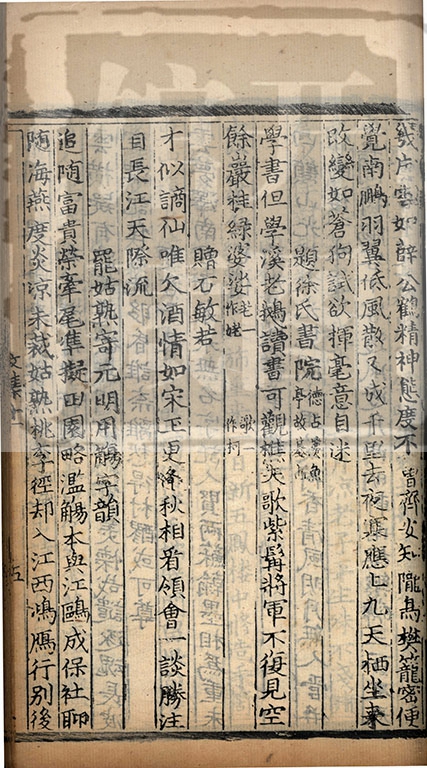 幾片雪如薛公鶴精神態度不曾齊安知隴鳥樊籠密便
覺南鵬羽翼低風散又成千里去夜寒應上九天栖坐來
改變如蒼狗試欲揮毫意自迷
題徐氏書院
學書但學溪老鵝讀書可觀樵夫歌紫髯將軍不復見空
餘巖桂綠婆娑老一作姥歌一作柯
贈石敏若
才似謫仙唯欠酒情如宋玉更逢秋相看領會一談勝注
目長江天際流
罷姑熟寄元明用觴字韻
追隨富貴勞牽尾準擬田園略濫觴本與江鷗成保社聊
隨海燕度炎涼未裁姑熟桃李徑却入江西鴻鴈行別後